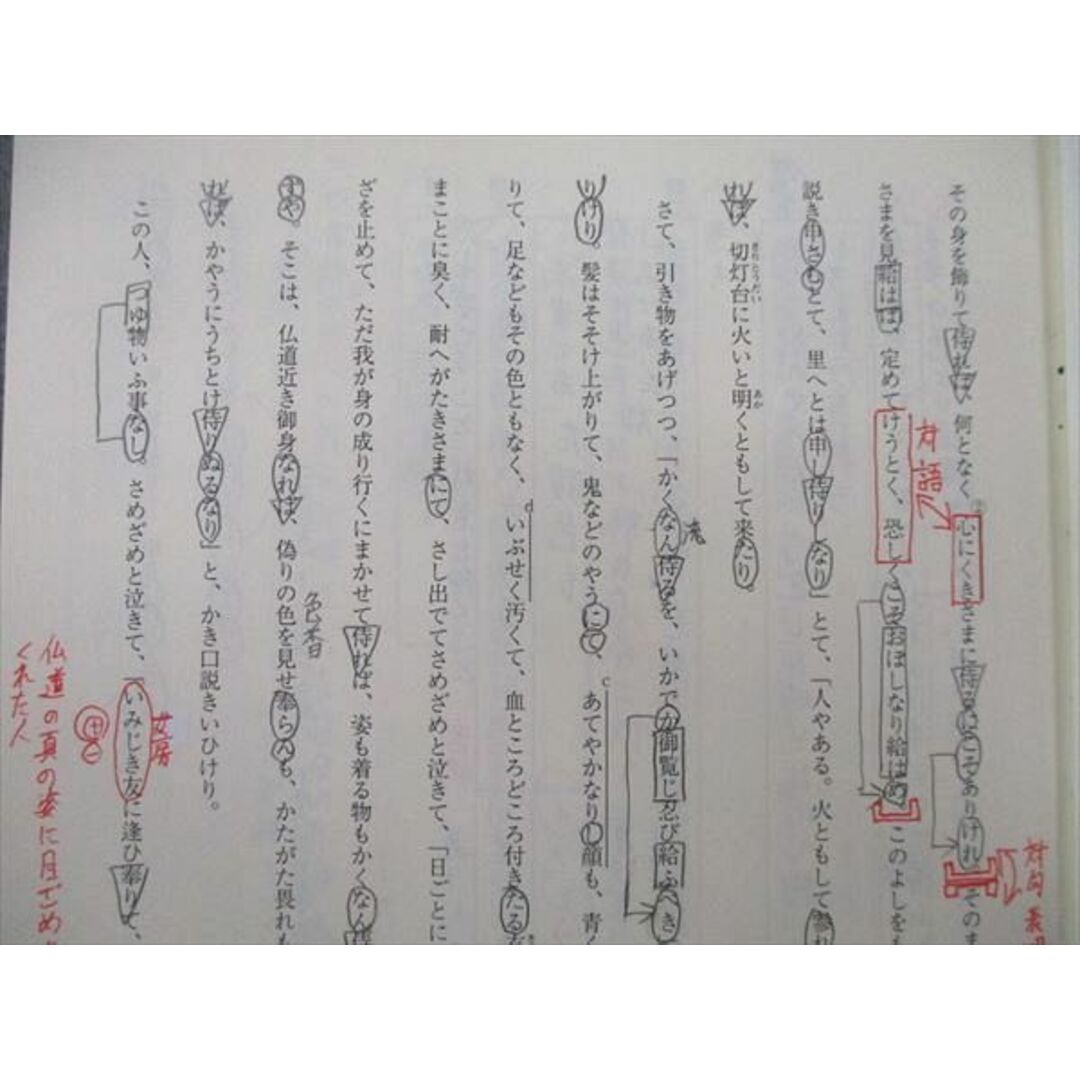 その身を飾りて侍れば、何となく心にくきさまに侍るにこそありけれ。そのま
さまを見給はば、定めてけうとく、恐しくこそおぼしなり給はめ。このよしをも
説き申さむとて、里へとは申し侍りしなり」とて、「人やある。火ともして参れ
れば、切灯台に火いと明くともして来たり。
きりとうだい
あか
さて、引き物をあげつつ、「かくなん侍るを、いかでか御覧じ忍び給ふべき
りけり。髪はそそけ上がりて、鬼などのやうにて、あてやかなりし顔も、青く
c
りて、足などもその色ともなく、いぶせく汚くて、血ところどころ付きたる
d
まことに臭く、耐へがたきさまにて、さし出でてさめざめと泣きて、「日ごとに
ざを止めて、ただ我が身の成り行くにまかせて侍れば、姿も着る物もかくなん侍
ずや。そこは、仏道近き御身なれば、偽りの色を見せ奉らんも、かたがた畏れも
れば、かやうにうちとけ侍りぬるなり」と、かき口説きいひけり。
この人、つゆ物いふ事なし。さめざめと泣きて、「いみじき友に逢ひ奉りて、
対語
対句
女房
仏道の真の姿に目ざめ
くれた人